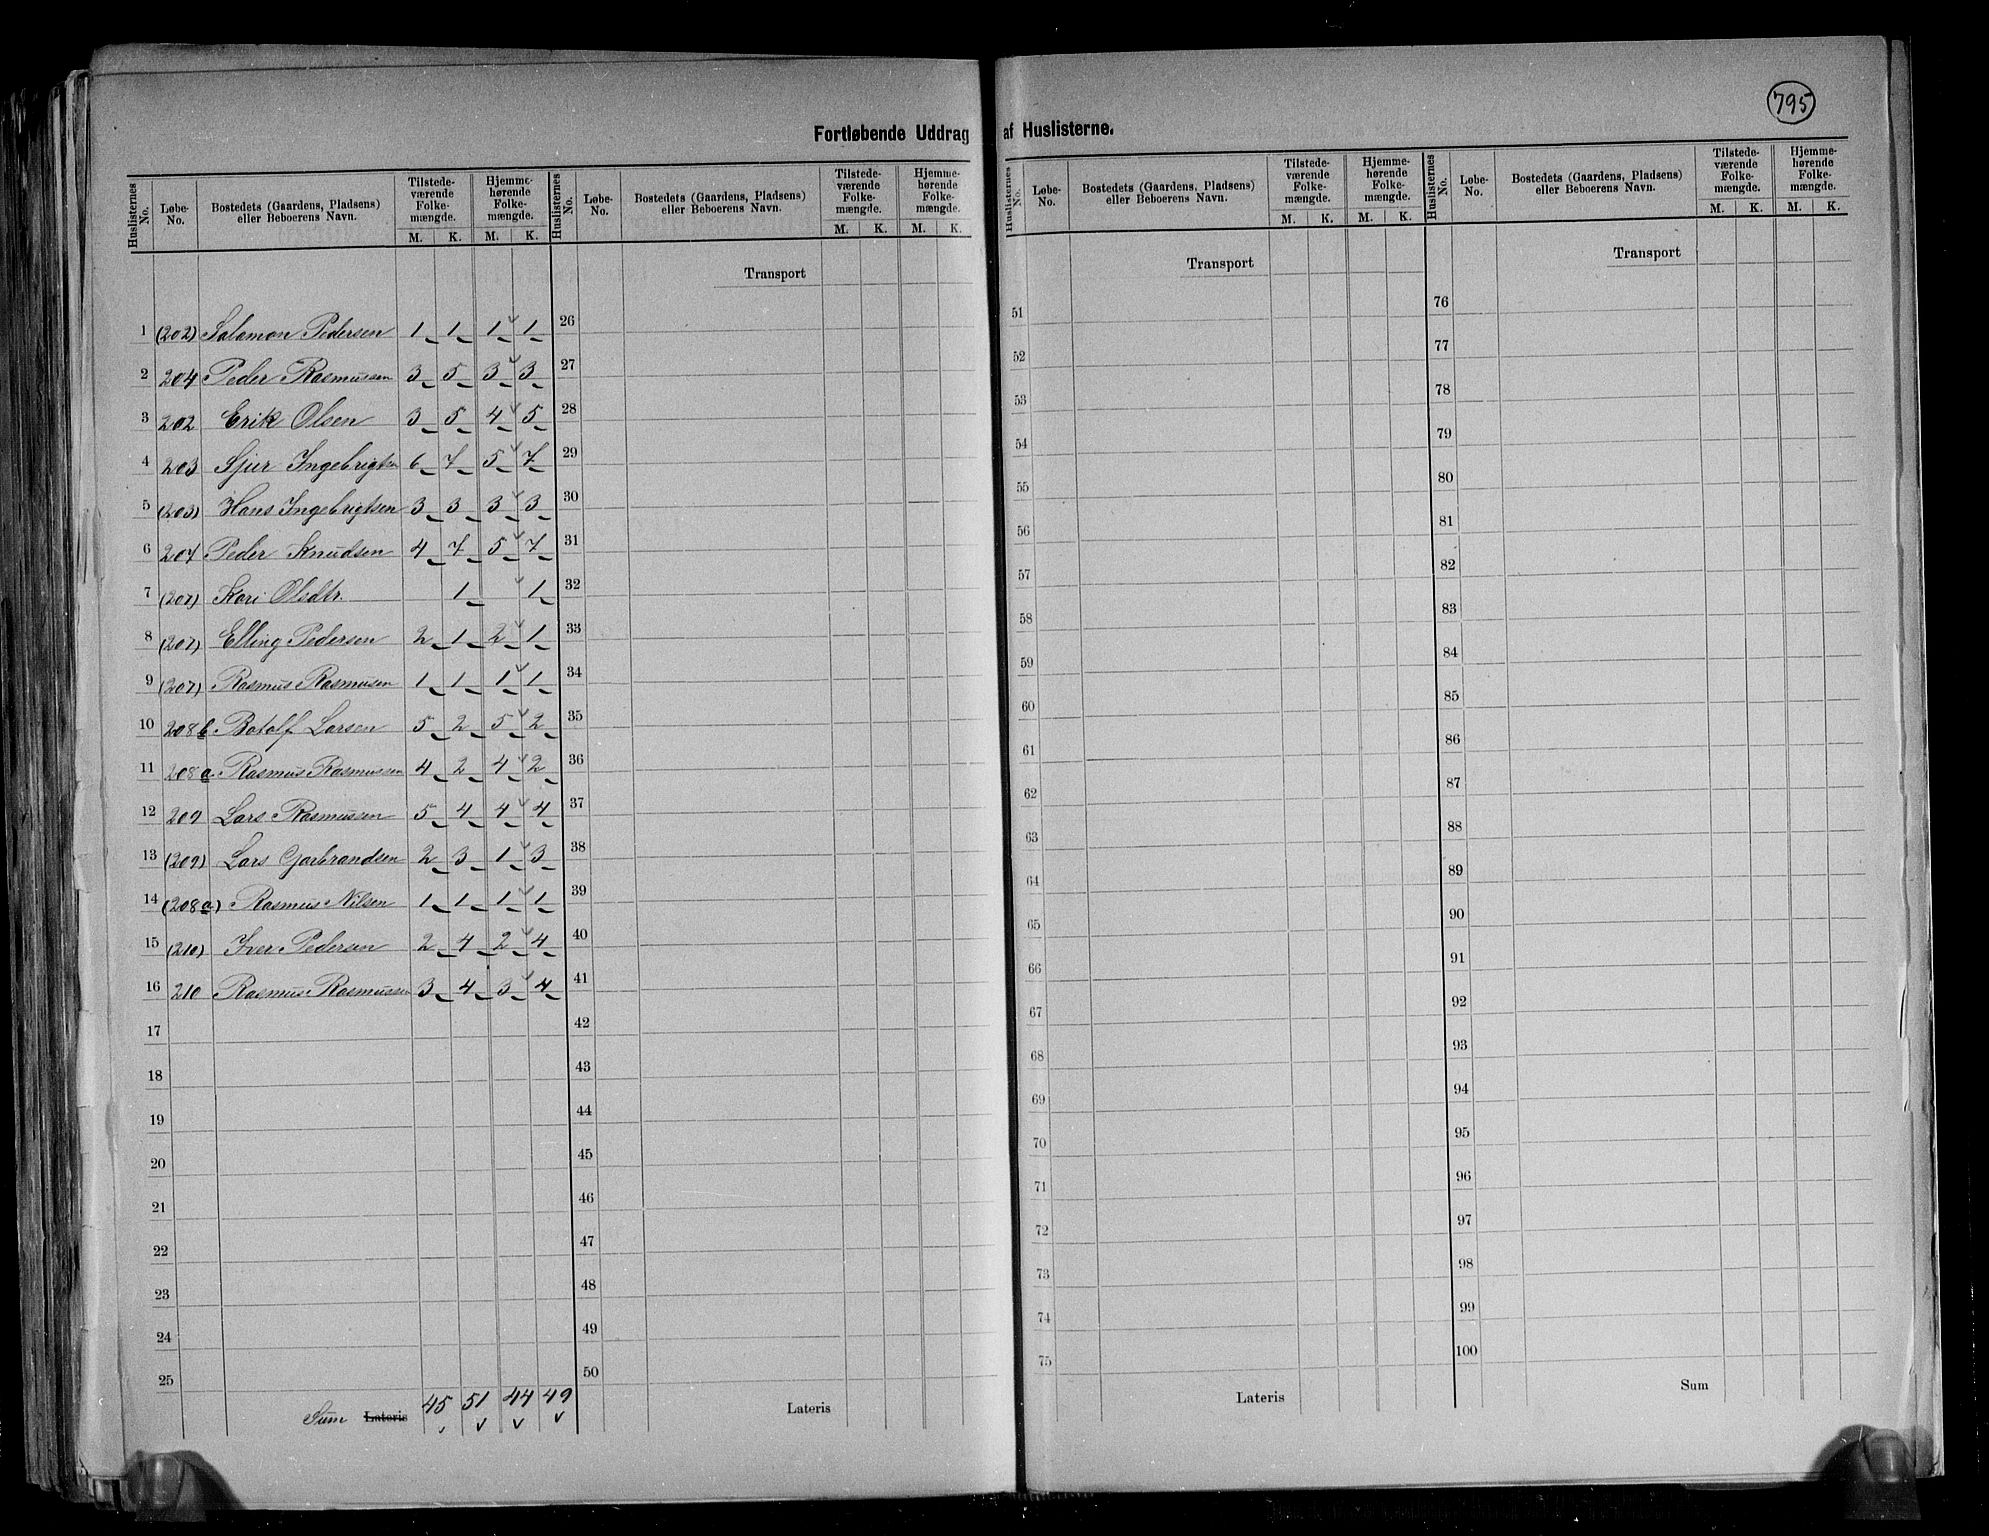 795
Fortløbende Uddrag af Huslisterne.
Huslisternes No. | Løbe-No. | Bostedets (Gaardens, Pladsens) eller Beboerens Navn. | Tilstedeværende Folkemængde. M. K. | Hjemmehørende Folkemængde. M. K.
Huslisternes No. | Løbe-No. | Bostedets (Gaardens, Pladsens) eller Beboerens Navn. | Tilstedeværende Folkemængde. M. K. | Hjemmehørende Folkemængde. M. K.
Huslisternes No. | Løbe-No. | Bostedets (Gaardens, Pladsens) eller Beboerens Navn. | Tilstedeværende Folkemængde. M. K. | Hjemmehørende Folkemængde. M. K.
Huslisternes No. | Løbe-No. | Bostedets (Gaardens, Pladsens) eller Beboerens Navn. | Tilstedeværende Folkemængde. M. K. | Hjemmehørende Folkemængde. M. K.
1 (202) Salamon Pedersen 1 1 1 1
2 204 Peder Rasmussen 3 5 3 3
3 202 Erik Olsen 3 5 4 5
4 203 Sjur Ingebrigtsen 6 7 5 7
5 (203) Hans Ingebrigtsen 3 3 3 3
6 207 Peder Knudsen 4 7 5 7
7 (207) Kari Olsdtr. 1 1
8 (207) Elling Pedersen 2 1 2 1
9 (207) Rasmus Rasmusen 1 1 1 1
10 208b Botolf Larsen 5 2 5 2
11 208a Rasmus Rasmussen 4 2 4 2
12 209 Lars Rasmussen 5 4 4 4
13 (209) Lars Garbrandsen 2 3 1 3
14 (208a) Rasmus Nilsen 1 1 1 1
15 (210) Iver Pedersen 2 4 2 4
16 210 Rasmus Rasmussen 3 4 3 4
17
18
19
20
21
22
23
24
25
Sum Lateris 45 51 44 49
Transport
26
27
28
29
30
31
32
33
34
35
36
37
38
39
40
41
42
43
44
45
46
47
48
49
50
Lateris
Transport
51
52
53
54
55
56
57
58
59
60
61
62
63
64
65
66
67
68
69
70
71
72
73
74
75
Lateris
Transport
76
77
78
79
80
81
82
83
84
85
86
87
88
89
90
91
92
93
94
95
96
97
98
99
100
Sum